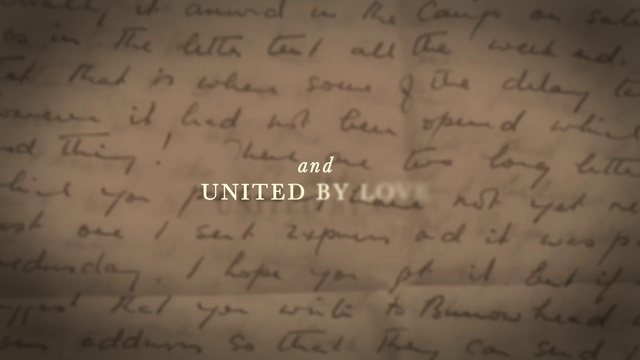 it arrived in the Camp on
as in the letter tent all the week end.
that is where some of the delay
However it had not been opened which
thing! There are two long
which you not yet
one I sent Express and it was
Wednesday. I hope you get it but if
that you write to Burrow head
address so that they can send
and
UNITED BY LOVE